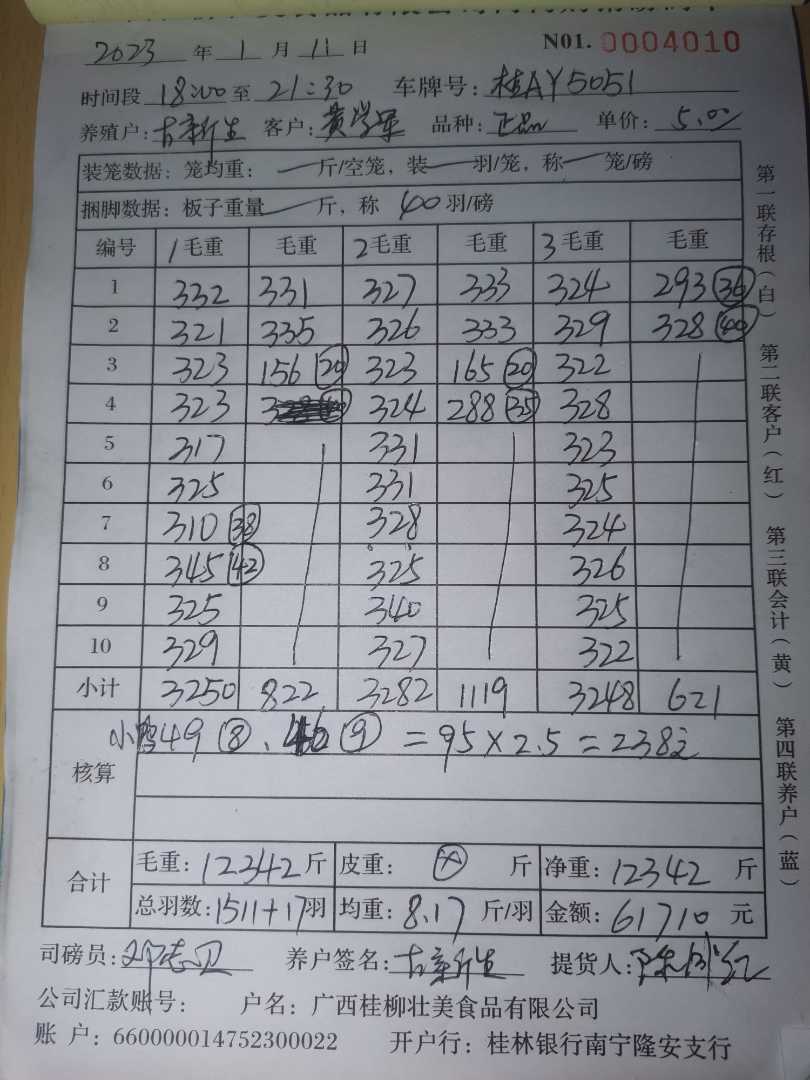 2023 年 1 月 11 日 N01. 0004010
时间段 18:00 至 21:30 车牌号: 桂AY5051
养殖户: 古新生 客户: 黄学军 品种: 正品 单价: 5.00
装笼数据: 笼均重: 一 斤/空笼, 装 一 羽/笼, 称 一 笼/磅
捆脚数据: 板子重量 一 斤, 称 40 羽/磅
编号 1毛重 毛重 2毛重 毛重 3毛重 毛重
1 332 331 327 333 324 293 36
2 321 335 326 333 329 328 40
3 323 156 20 323 165 20 322
4 323 324 288 35 328
5 317 331 323
6 325 331 325
7 310 38 328 324
8 345 42 325 326
9 325 340 325
10 329 327 322
小计 3250 822 3282 1119 3248 621
核算
小鸭49 8、46 9 = 95 × 2.5 = 238元
合计
毛重: 12342 斤 皮重: 斤 净重: 12342 斤
总羽数: 1511+17 羽 均重: 8.17 斤/羽 金额: 61710 元
司磅员: 养户签名: 古新生 提货人:
公司汇款账号: 户名: 广西桂柳壮美食品有限公司
账 户: 660000014752300022 开户行: 桂林银行南宁隆安支行
第一联存根(白) 第二联客户(红) 第三联会计(黄) 第四联养户(蓝)